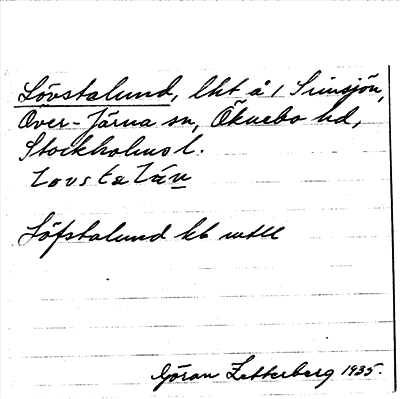 Lövstalund, lht å 1 Simsjön,
Över-Järna sn, Öknebo hd,
Stockholms l.
Lovstalún
Löfstalund kb
Göran Zetterberg 1935.